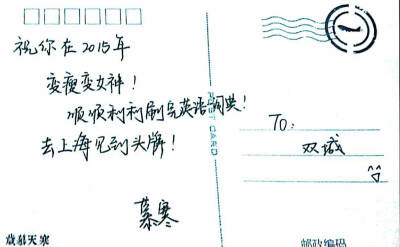 祝你在2015年
变瘦变女神！
顺顺利利刷完英语词典！
去上海见到头牌！
慕寒
POST CARD
TO:
双城
邮政编码